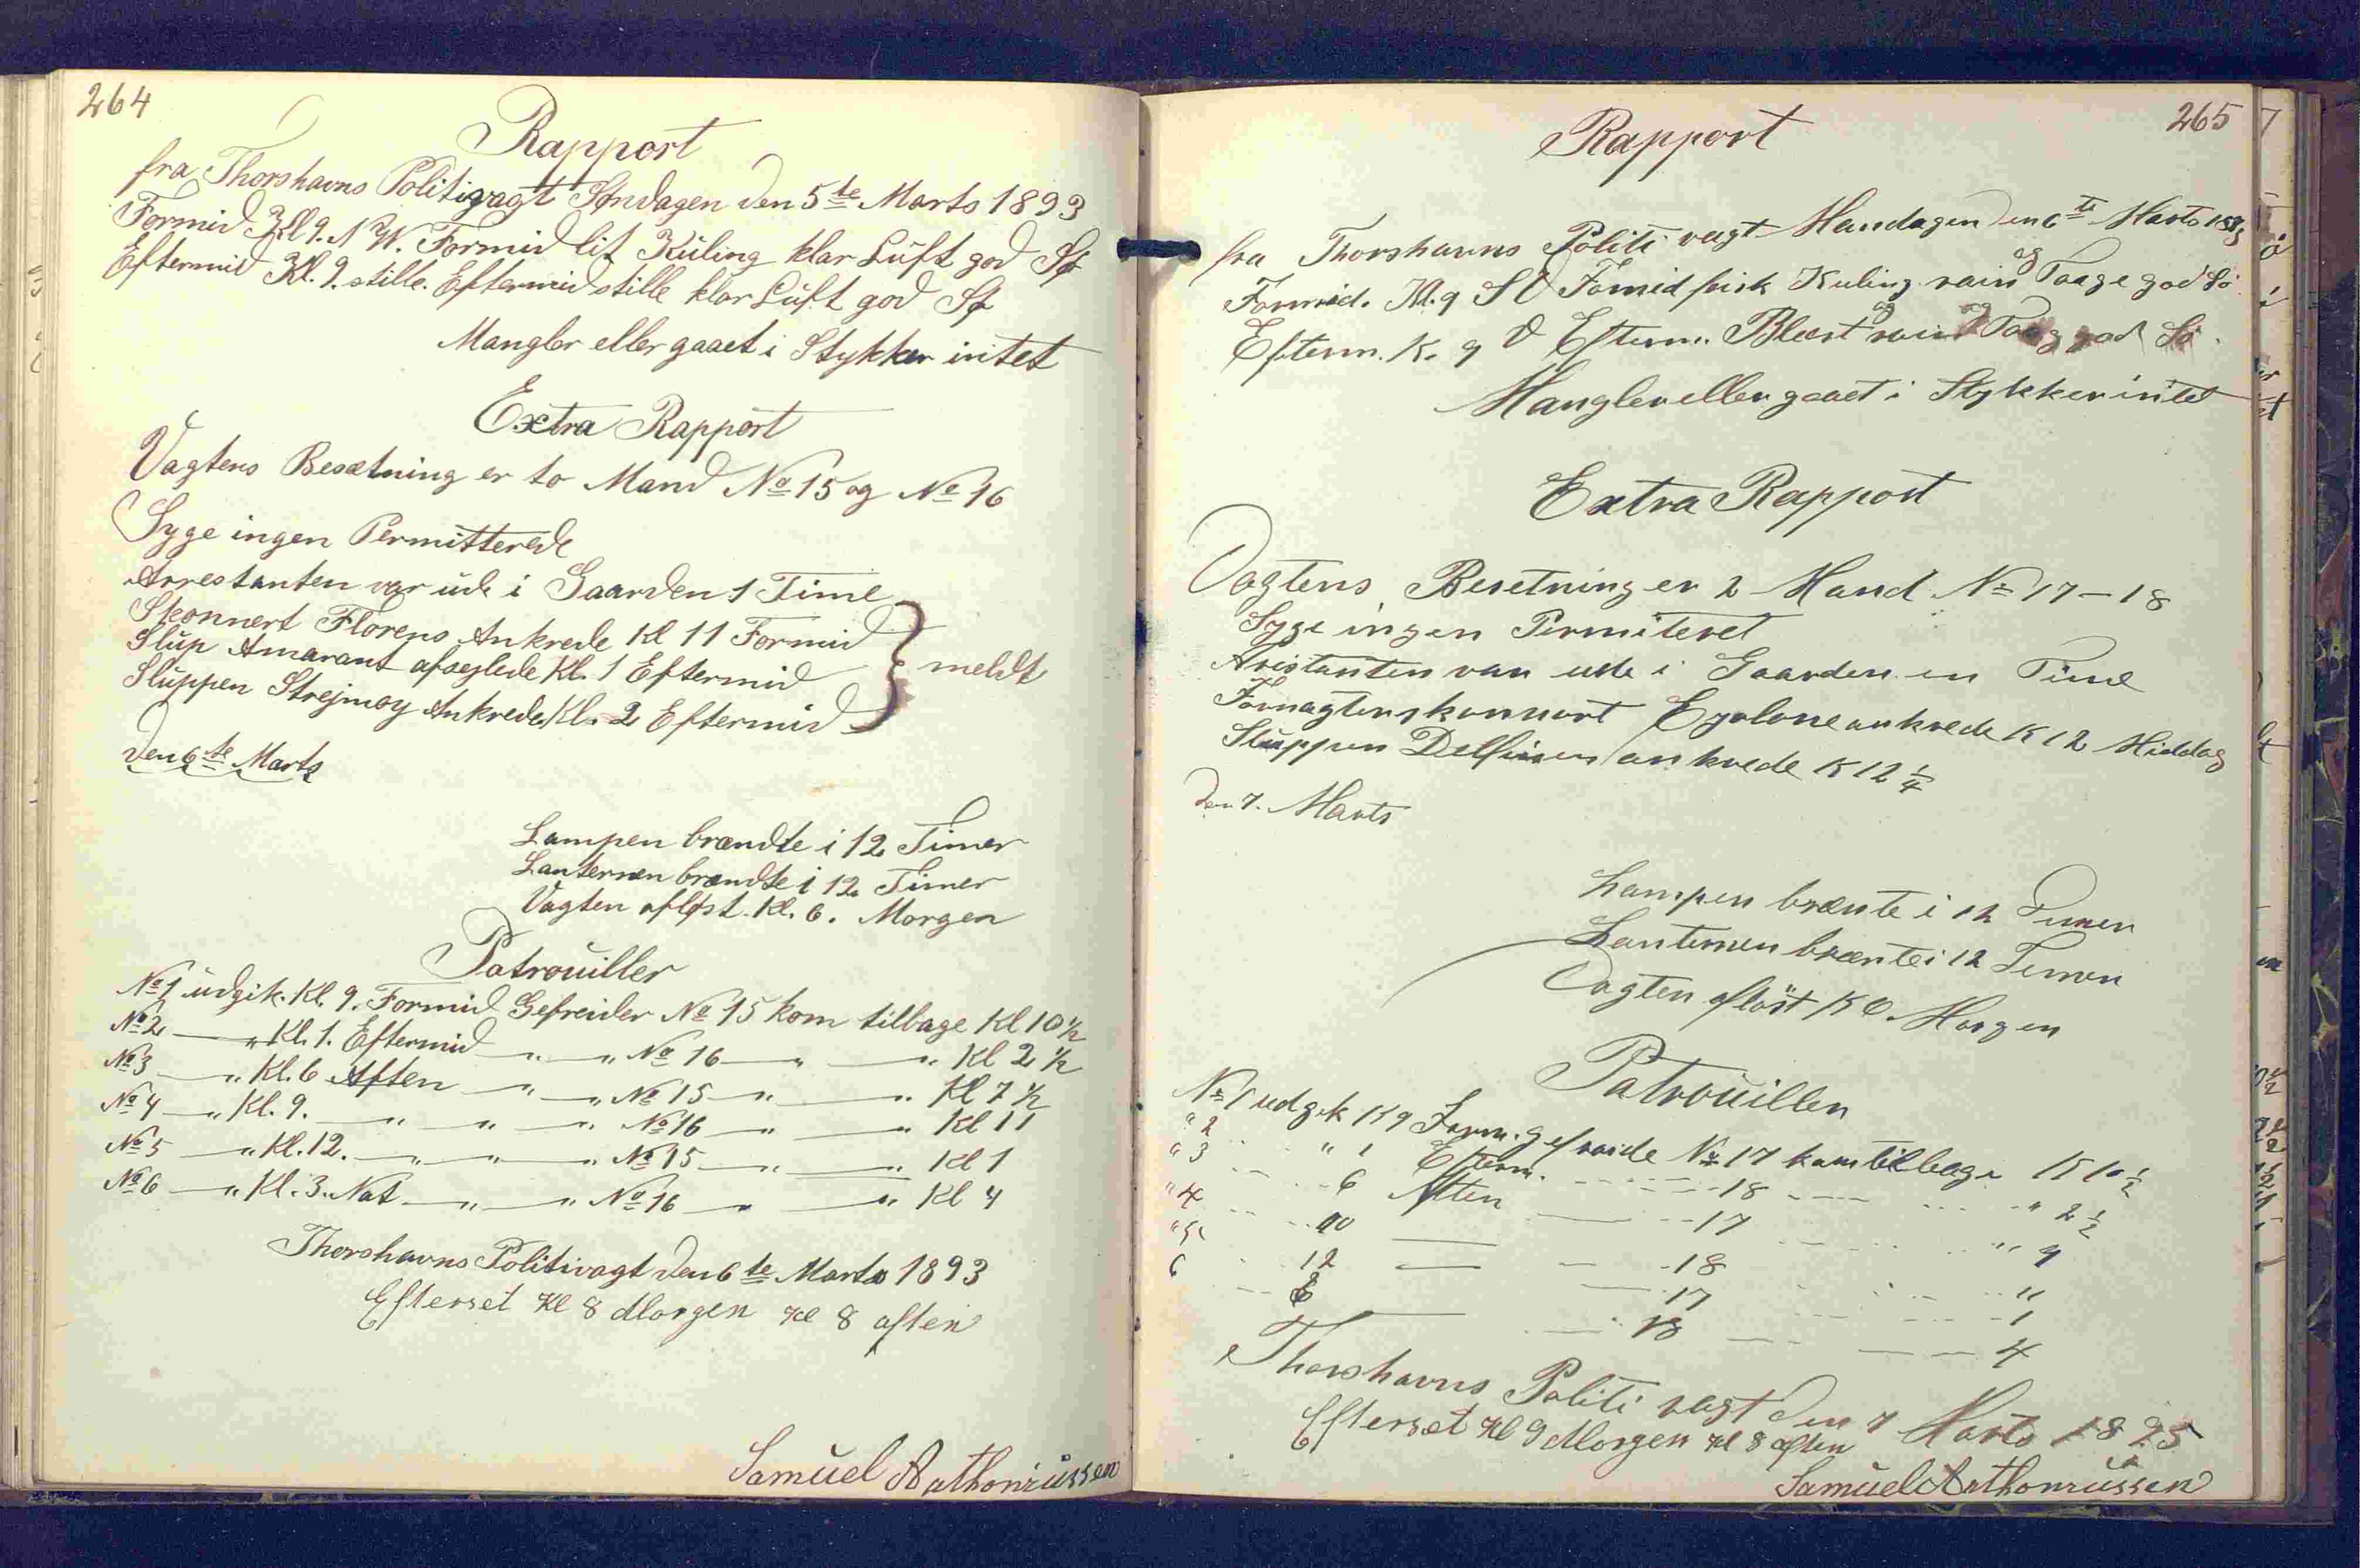 264
Rapport
fra Thorshavns Politivagt Søndagen den 5te Marts 1893
Formid Kl 9. N W. Formid lit Kuling klar Luft god Sø
Eftermid Kl. 9. stille. Eftermid stille klar Luft god Sø
Mangler eller gaaet i Stykker intet
Extra Rapport
Vagtens Besætning er to Mand No 15 og No 16
Syge ingen Permitterede
Arrestanten var ude i Gaarden 1 Time
Skonnert Florens Ankrede Kl 11 Formid
Slup Amarant afsejlede Kl. 1 Eftermid
meldt
Sluppen Strejmøy Ankrede Kl. 2 Eftermid
den 6te Marts
Lampen brændte i 12 Timer
Lanternen brændte i 12 Timer
Vagten afløst. Kl. 6. Morgen
Patrouiller
No 1 udgik. Kl. 9. Formid Gefreider No 15 kom tilbage Kl 10 1/2
No 2 — " Kl. 1. Eftermid — " — " No 16 — " — " Kl 2 1/2
No 3 — " Kl. 6 Aften — " — " No 15 — " — " Kl 7 1/2
No 4 — " Kl. 9. — " — " — " No 16 — " — " Kl 11
No 5 — " Kl. 12. — " — " — " No 15 — " — " Kl 1
No 6 — " Kl. 3. Nat — " — " No 16 — " — " Kl 4
Thorshavns Politivagt den 6te Marts 1893
Efterset Kl 8 Morgen Kl 8 aften
Samuel Anthoniussen
265
Rapport
fra Thorshavns Politi vagt Mandagen den 6te Marts 1893
Formid. Kl. 9 SV Formid frisk Kuling rain og Taage god Sö
Efterm. K. 9 V Efterm. Blæst og rain og Taag god Sö.
Mangler eller gaaet i Stykker intet
Extra Rapport
Vagtens Besetning er 2 Mand No 17 - 18
Syge ingen Permiteret
Aristanten var ude i Gaarden en Time
ankrede K 12 Middag
Sluppen Delfinen ankrede K 12 1/4
den 7. Marts
Lampen brænte i 12 Timer
Lanternen brænte i 12 Timer
Vagten aflöst K 6. Morgen
Patrouiller
No 1 udgik K 9 Form. gefraide No 17 kom tilbage K 10 1/2
" 2 " 1 Efterm. 18 " 2 1/2
" 3 6 Aften 17 " 9
" 4 10 — 18 11
" 5 12 — 17 1
6 — 18 4
Thorshavns Politi vagt den 7 Marts 1895
Efterset Kl 9 Morgen Kl 8 aften
Samuel Anthoniussen